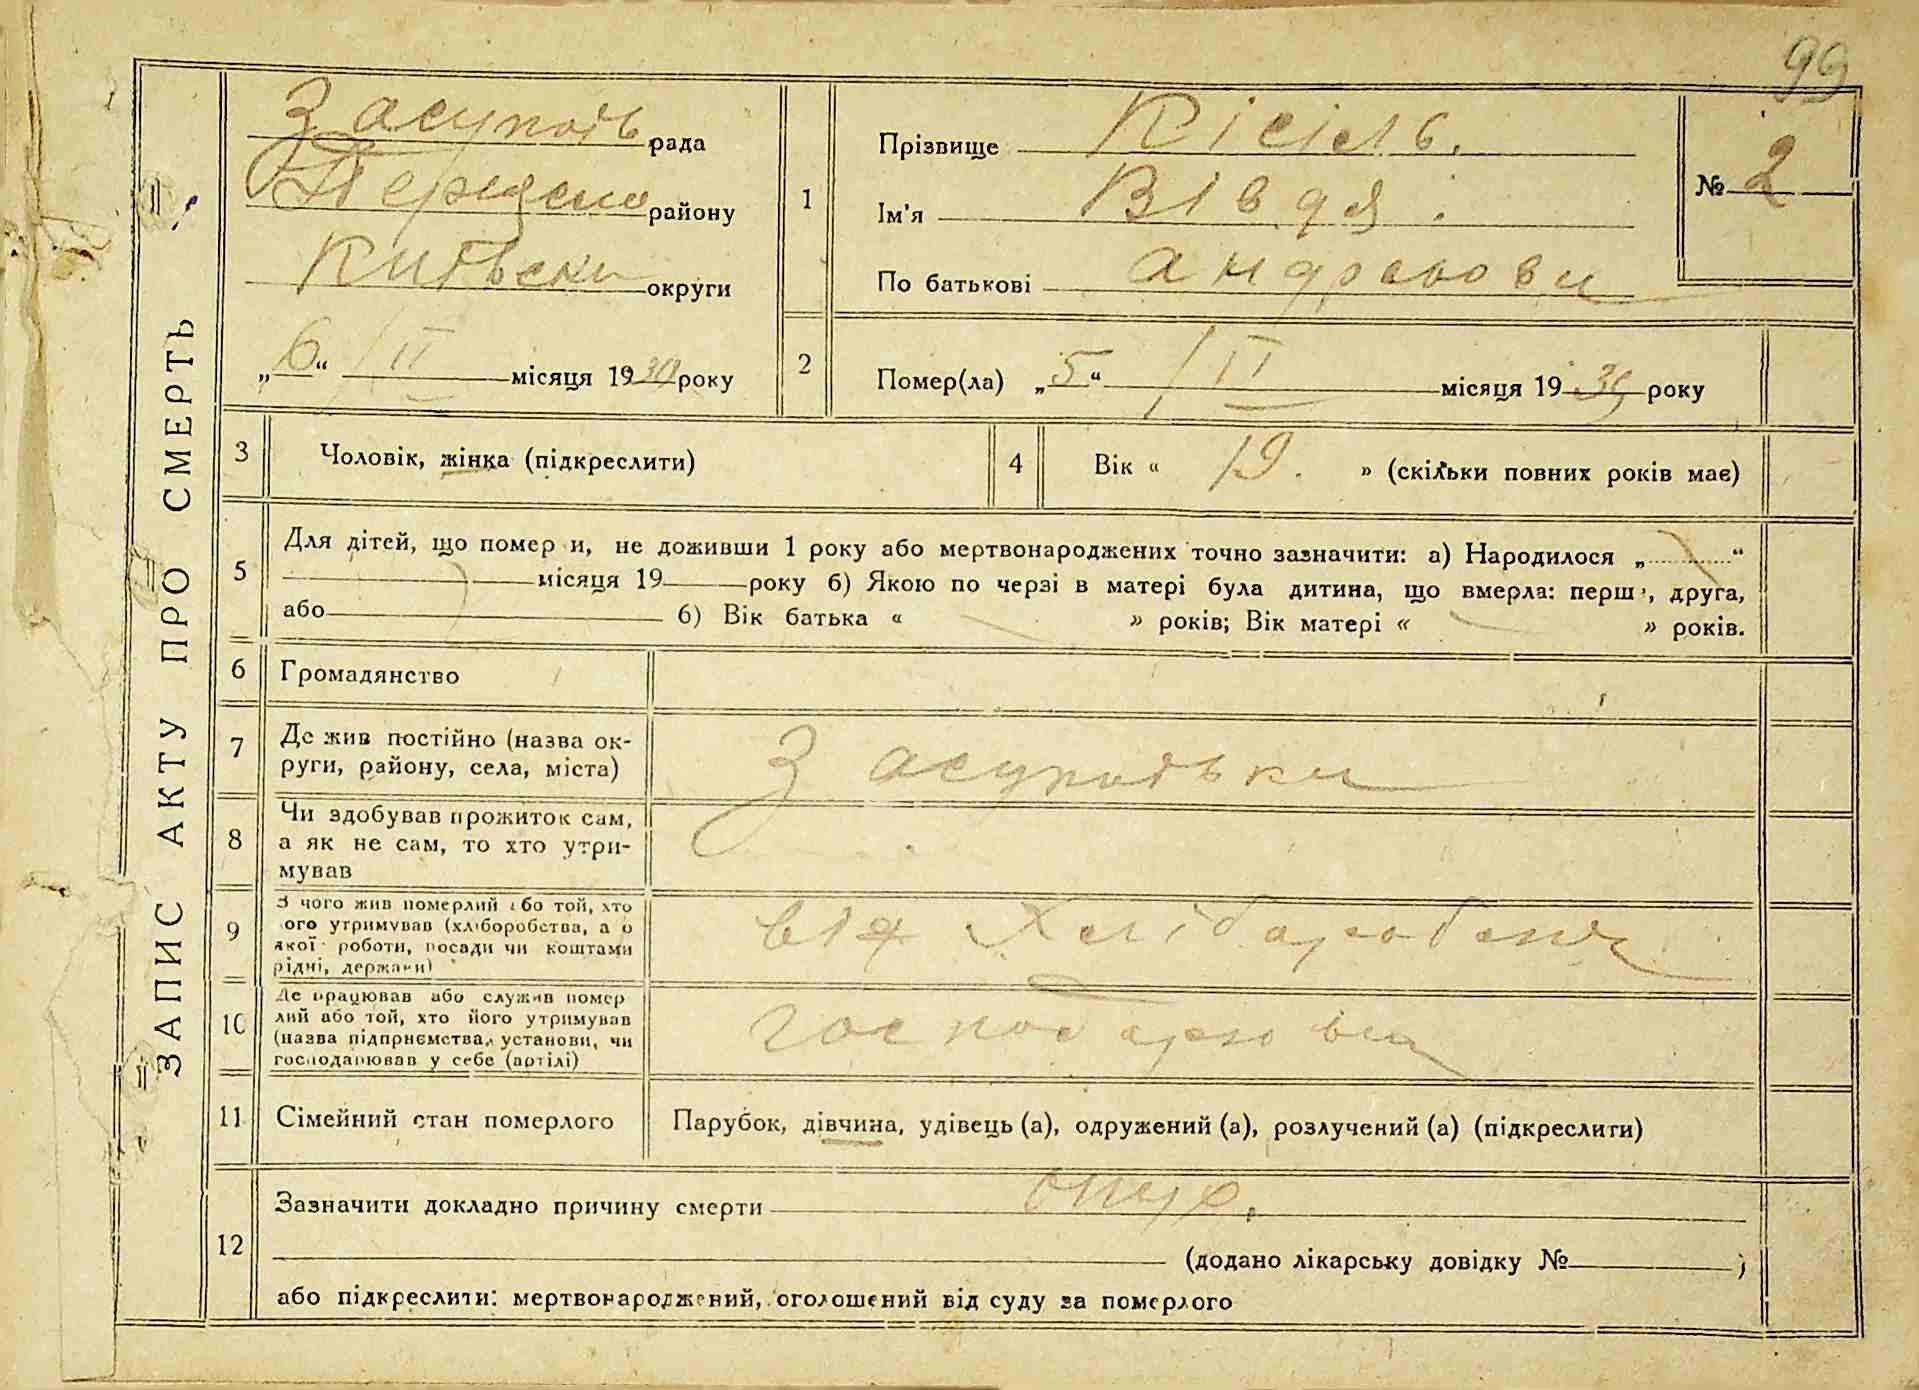 99
ЗАПИС АКТУ ПРО СМЕРТЬ
Засупоть рада
району
Київськи округи
„6“ II місяця 1930 року
1
Прізвище Кісіль.
Ім'я Вівдя.
По батькові Андреюви
№ 2
2
Помер(ла) „5“ II місяця 1930 року
3
Чоловік, жінка (підкреслити)
4
Вік « 19. » (скільки повних років має)
5
Для дітей, що помер и, не доживши 1 року або мертвонароджених точно зазначити: а) Народилося „ “
місяця 19 року б) Якою по черзі в матері була дитина, що вмерла: перш , друга,
або б) Вік батька « » років; Вік матері « » років.
6
Громадянство
7
Де жив постійно (назва ок-
руги, району, села, міста)
Засупотьки
8
Чи здобував прожиток сам,
а як не сам, то хто утри-
мував
9
З чого жив померлий або той, хто
ого утримував (хліборобства, а о
якої роботи, посади чи коштами
рідні, держави)
від Хліборобеня
10
Де працював або служив помер
лий або той, хто його утримував
(назва підприємства, установи, чи
господарював у себе (артілі)
господарювш
11
Сімейний стан померлого
Парубок, дівчина, удівець (а), одружений (а), розлучений (а) (підкреслити)
12
Зазначити докладно причину смерти опух.
(додано лікарську довідку № )
або підкреслити: мертвонароджений, оголошений від суду за померлого